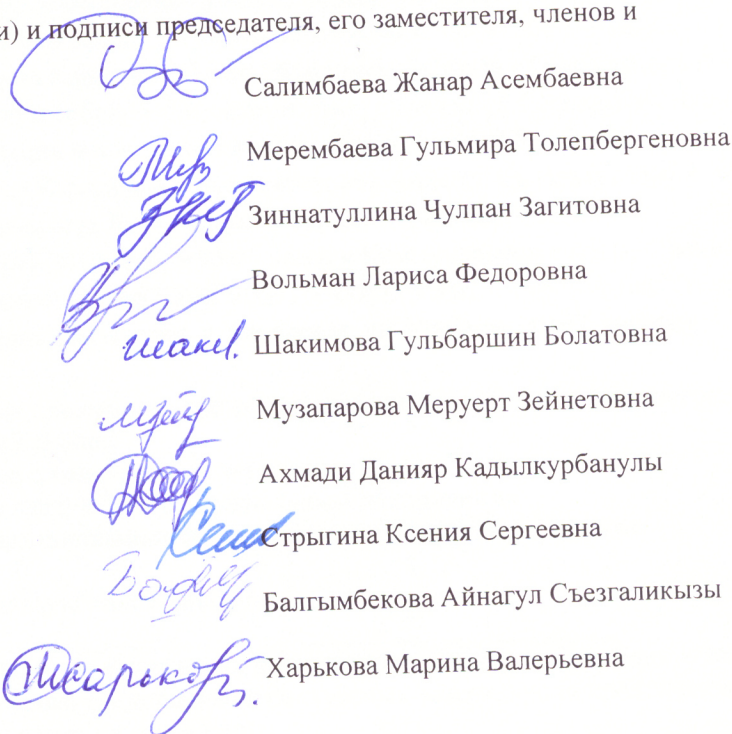 и) и подписи председателя, его заместителя, членов и
Салимбаева Жанар Асембаевна
Мерембаева Гульмира Толепбергеновна
Зиннатуллина Чулпан Загитовна
Вольман Лариса Федоровна
Шаким. Шакимова Гульбаршин Болатовна
Музапарова Меруерт Зейнетовна
Ахмади Данияр Кадылкурбанулы
Стрыгина Ксения Сергеевна
Балгымбекова Айнагул Съезгаликызы
Харькова Марина Валерьевна